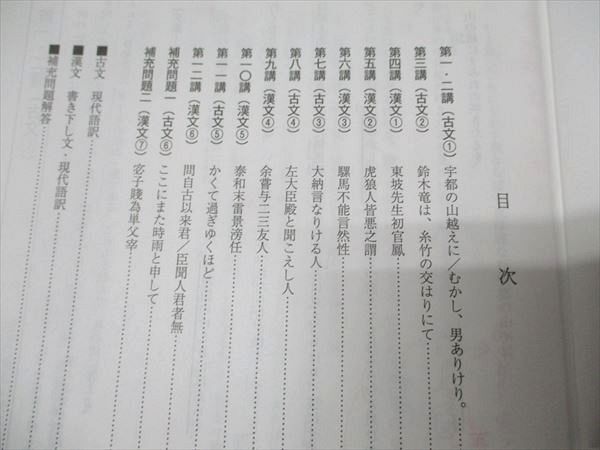 目次
第一・二講（古文①）宇都の山越えに／むかし、男ありけり。
第三講（古文②）鈴木竜は、糸竹の交はりにて
第四講（漢文①）東坡先生初官鳳
第五講（漢文②）虎狼人皆悪之謂
第六講（漢文③）騾馬不能言然性
第七講（古文③）大納言なりける人
第八講（古文④）左大臣殿と聞こえし人
第九講（漢文④）余嘗与二三友人
第一〇講（漢文⑤）泰和末雷景滂任
第一一講（古文⑤）かくて過ぎゆくほど
第一二講（漢文⑥）問自古以来君／臣聞人君者無
補充問題一（古文⑥）ここにまた時雨と申して
補充問題二（漢文⑦）宓子賤為単父宰
■古文　現代語訳
■漢文　書き下し文・現代語訳
■補充問題解答